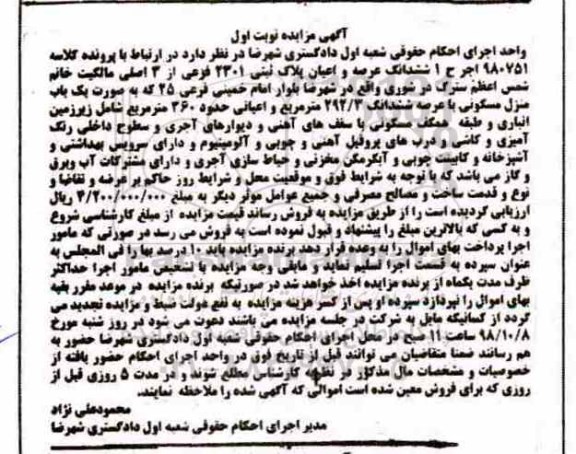 آگهی مزایده نوبت اول
واحد اجرای احکام حقوقی شعبه اول دادگستری شهرضا در نظر دارد در ارتباط با پرونده کلاسه
۹۸۰۷۵۱ اجر ح ۱ ششدانگ عرصه و اعیان پلاک ثبتی ۲۳۰۱ فرعی از ۳ اصلی مالکیت خانم
شمس اعظم سترک در شوری واقع در شهرضا بلوار امام خمینی فرعی ۲۵ که به صورت یک باب
منزل مسکونی با عرصه ششدانگ ۲۹۲/۳ مترمربع و اعیانی حدود ۳۶۰ مترمربع شامل زیرزمین
انباری و طبقه همکف مسکونی با سقف های آهنی و دیوارهای آجری و سطوح داخلی رنگ
آمیزی و کاشی و درب های پروفیل آهنی و چوبی و آلومینیوم و دارای سرویس بهداشتی و
آشپزخانه و کابینت چوبی و آبگرمکن مخزنی و حیاط سازی آجری و دارای مشترکات آب وبرق
و گاز می باشد که با توجه به شرایط فوق و موقعیت محل و شرایط روز حاکم بر عرضه و تقاضا و
نوع و قدمت ساخت و مصالح مصرفی و جمیع عوامل موثر دیگر به مبلغ ۴/۲۰۰/۰۰۰/۰۰۰ ریال
ارزیابی گردیده است را از طریق مزایده به فروش رساند قیمت مزایده از مبلغ کارشناسی شروع
و به کسی که بالاترین مبلغ را پیشنهاد و قبول نموده است به فروش می رسد در صورتی که مامور
اجرا پرداخت بهای اموال را به وعده قرار دهد برنده مزایده باید ۱۰ درصد بها را فی المجلس به
عنوان سپرده به قسمت اجرا تسلیم نماید و مابقی وجه مزایده با تشخیص مامور اجرا حداکثر
ظرف مدت یکماه از برنده مزایده اخذ خواهد شد در صورتیکه برنده مزایده در موعد مقرر بقیه
بهای اموال را نپردازد سپرده او پس از کسر هزینه مزایده به نفع دولت ضبط و مزایده تجدید می
گردد از کسانیکه مایل به شرکت در جلسه مزایده می باشند دعوت می شود در روز شنبه مورخ
۹۸/۱۰/۸ ساعت ۱۱ صبح در محل اجرای احکام حقوقی شعبه اول دادگستری شهرضا حضور به
هم رسانند ضمنا متقاضیان می توانند قبل از تاریخ فوق در واحد اجرای احکام حضور یافته از
خصوصیات و مشخصات مال مذکور در نظریه کارشناس مطلع شوند و در مدت ۵ روزی قبل از
روزی که برای فروش معین شده است اموالی که آگهی شده را ملاحظه نمایند.
محمودعلی نژاد
مدیر اجرای احکام حقوقی شعبه اول دادگستری شهرضا